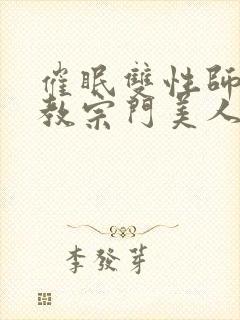 催眠雙性師
教宗門美人
李發芽